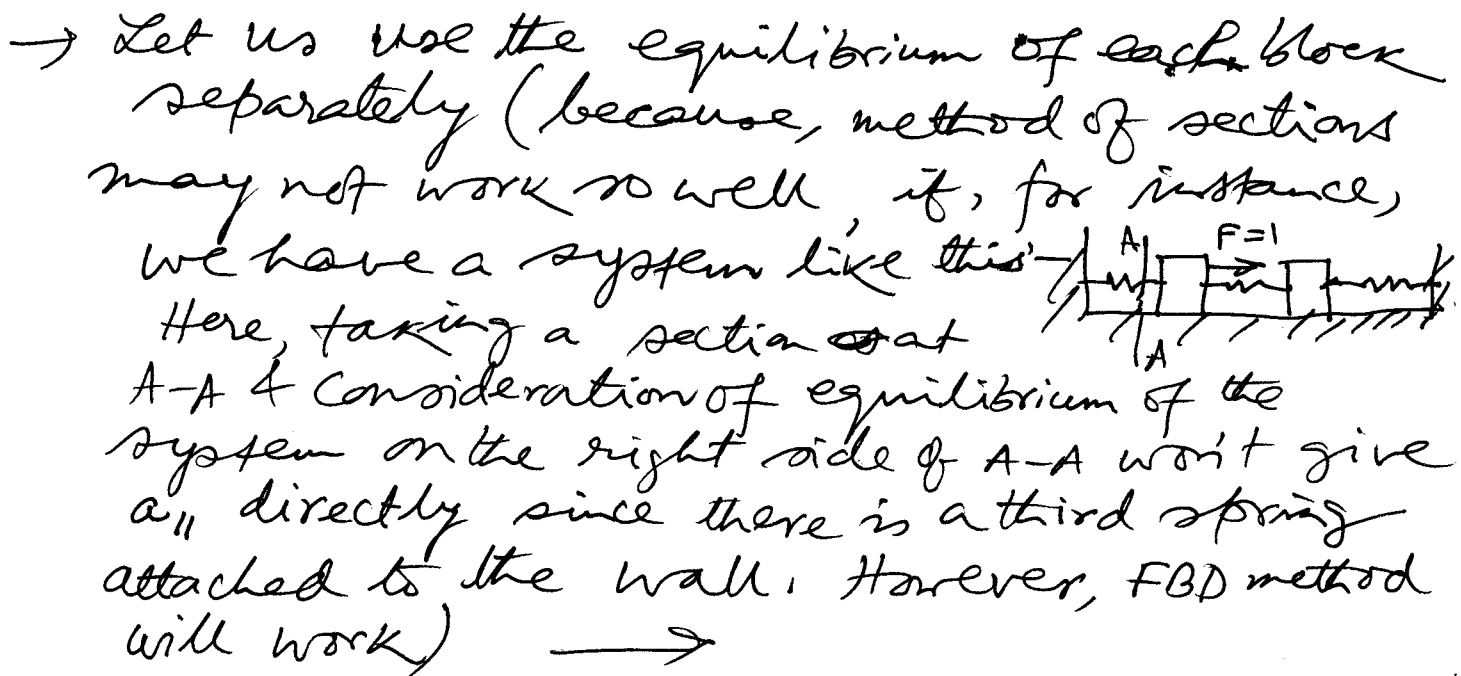 → Let us use the equilibrium of each block
separately (because, method of sections
may not work so well, if, for instance,
we have a system like this -
A F=1
Here, taking a section at
A
A-A & consideration of equilibrium of the
system on the right side of A-A won't give
a₁₁ directly since there is a third spring
attached to the wall. However, FBD method
will work) →